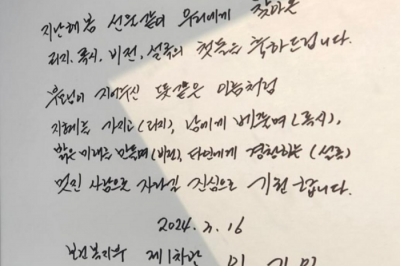 지난해 봄 선물같이 우리에게 찾아온
리지, 록시, 비전, 설록의 첫돌을 축하드립니다.
부모님이 지어주신 뜻깊은 이름처럼
지혜를 가지고(리지), 남에게 베풀며(록시),
밝은 미래를 만들며(비전), 타인에게 경청하는(설록)
멋진 사람으로 자라길 진심으로 기원합니다.
2024. 3. 16
보건복지부 제1차관